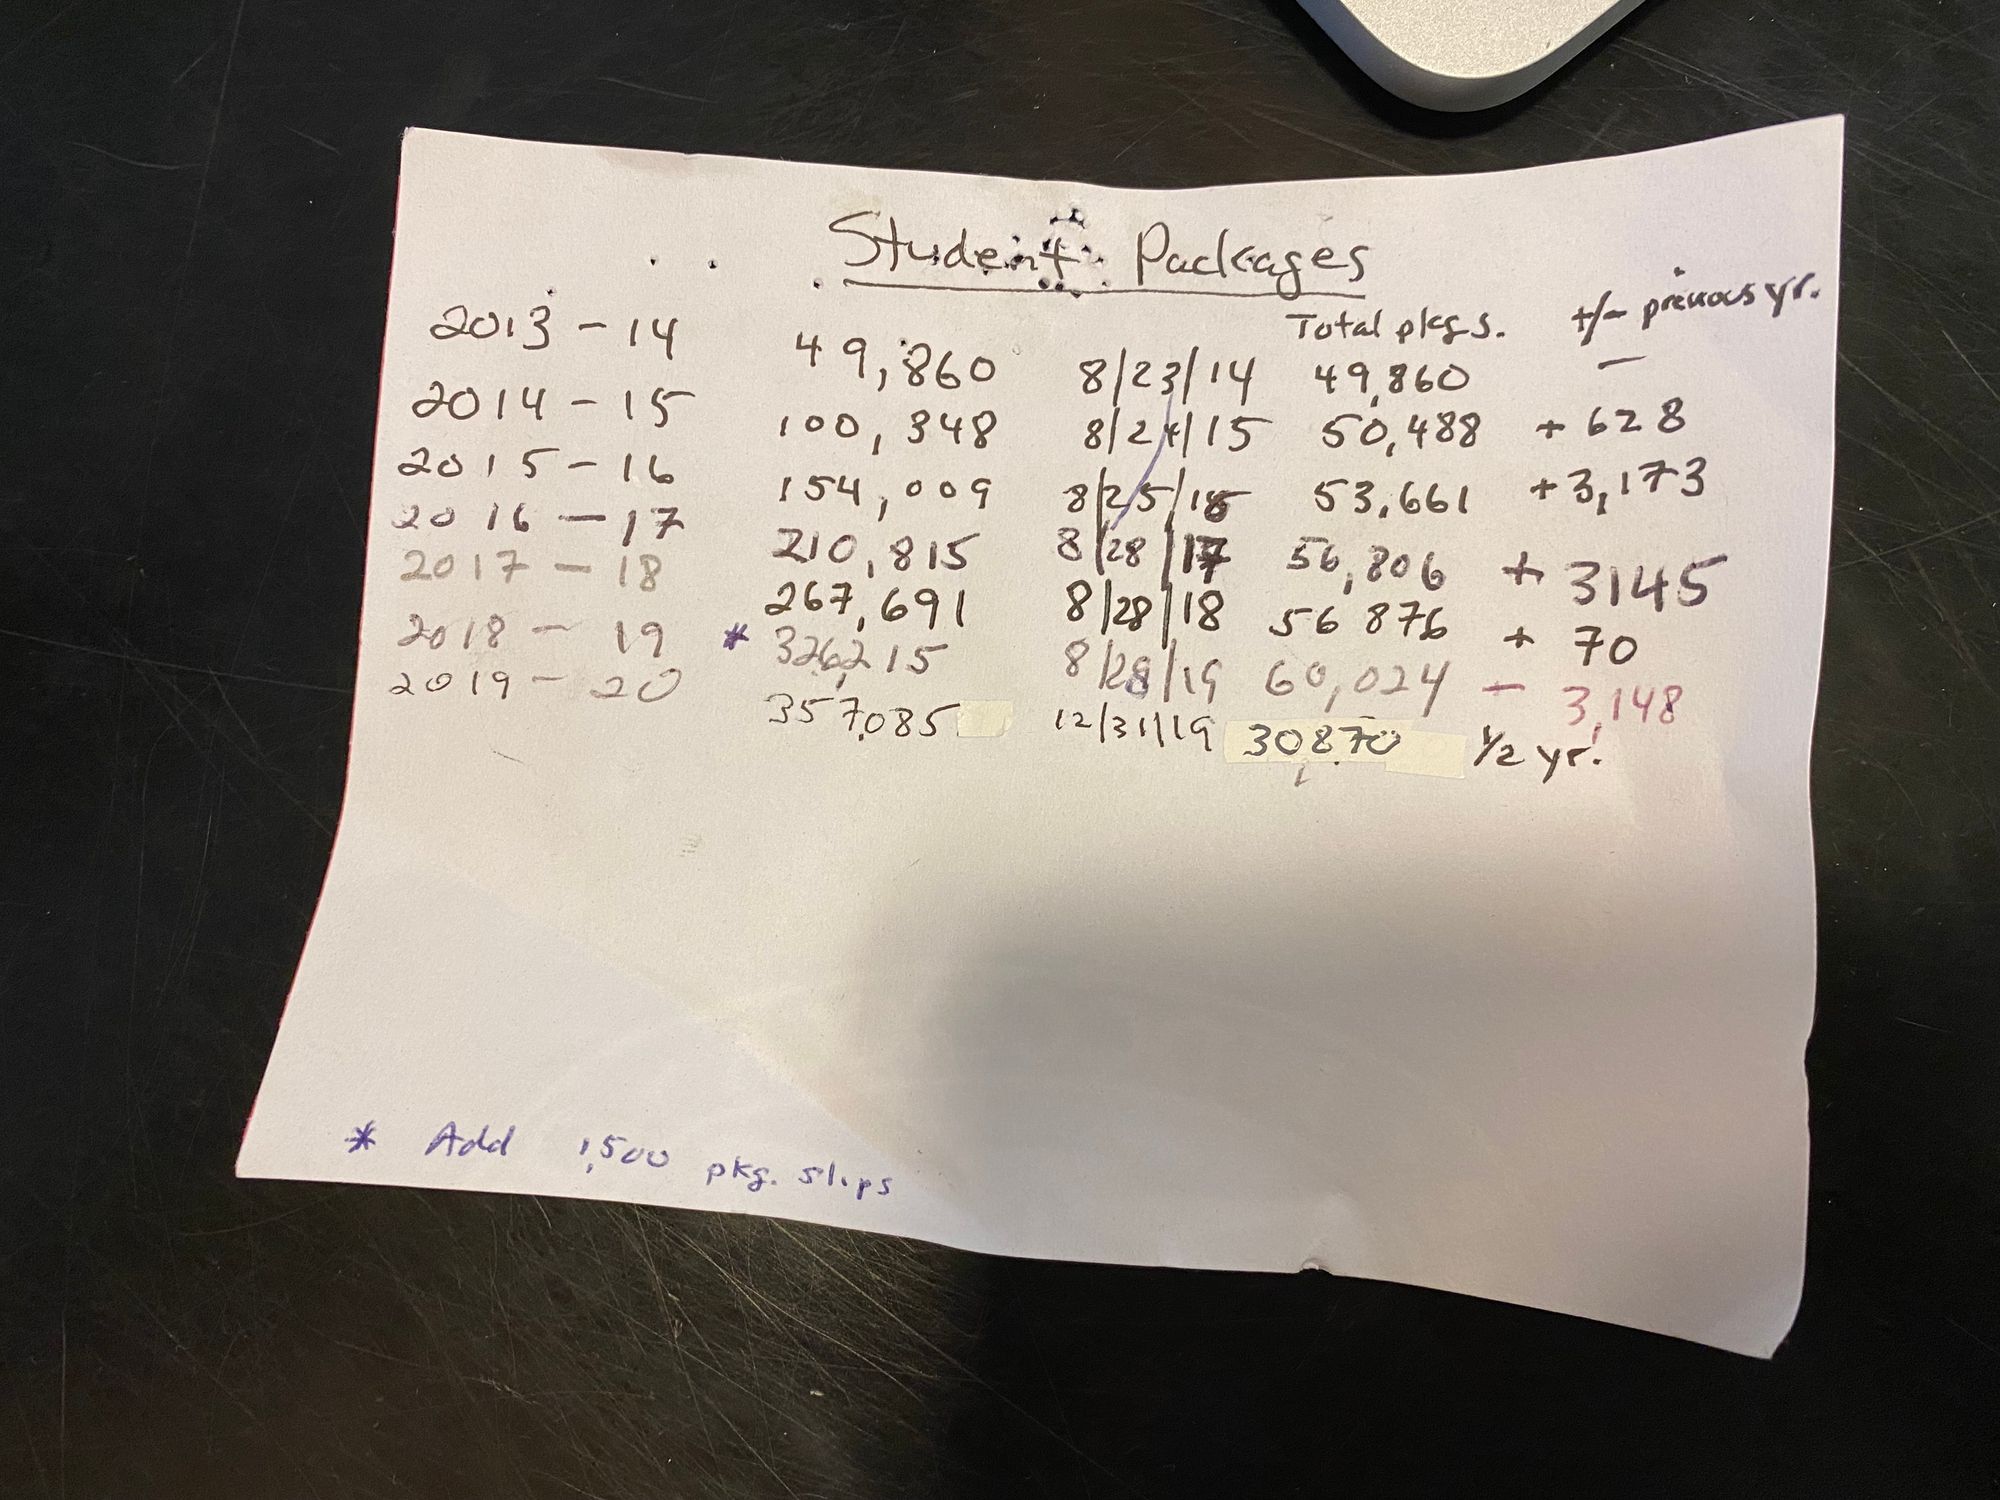 Student Packages
Total pkgs. +/- previous yr.
2013 - 14 49,860 8/23/14 49,860 —
2014 - 15 100,348 8/24/15 50,488 + 628
2015 - 16 154,009 8/25/16 53,661 + 3,173
2016 - 17 210,815 8/28/17 56,806 + 3145
2017 - 18 267,691 8/28/18 56 876 + 70
2018 - 19 * 326,215 8/28/19 60,024 - 3,148
2019 - 20 357,085 12/31/19 30,870 1/2 yr.
* Add 1,500 pkg. slips